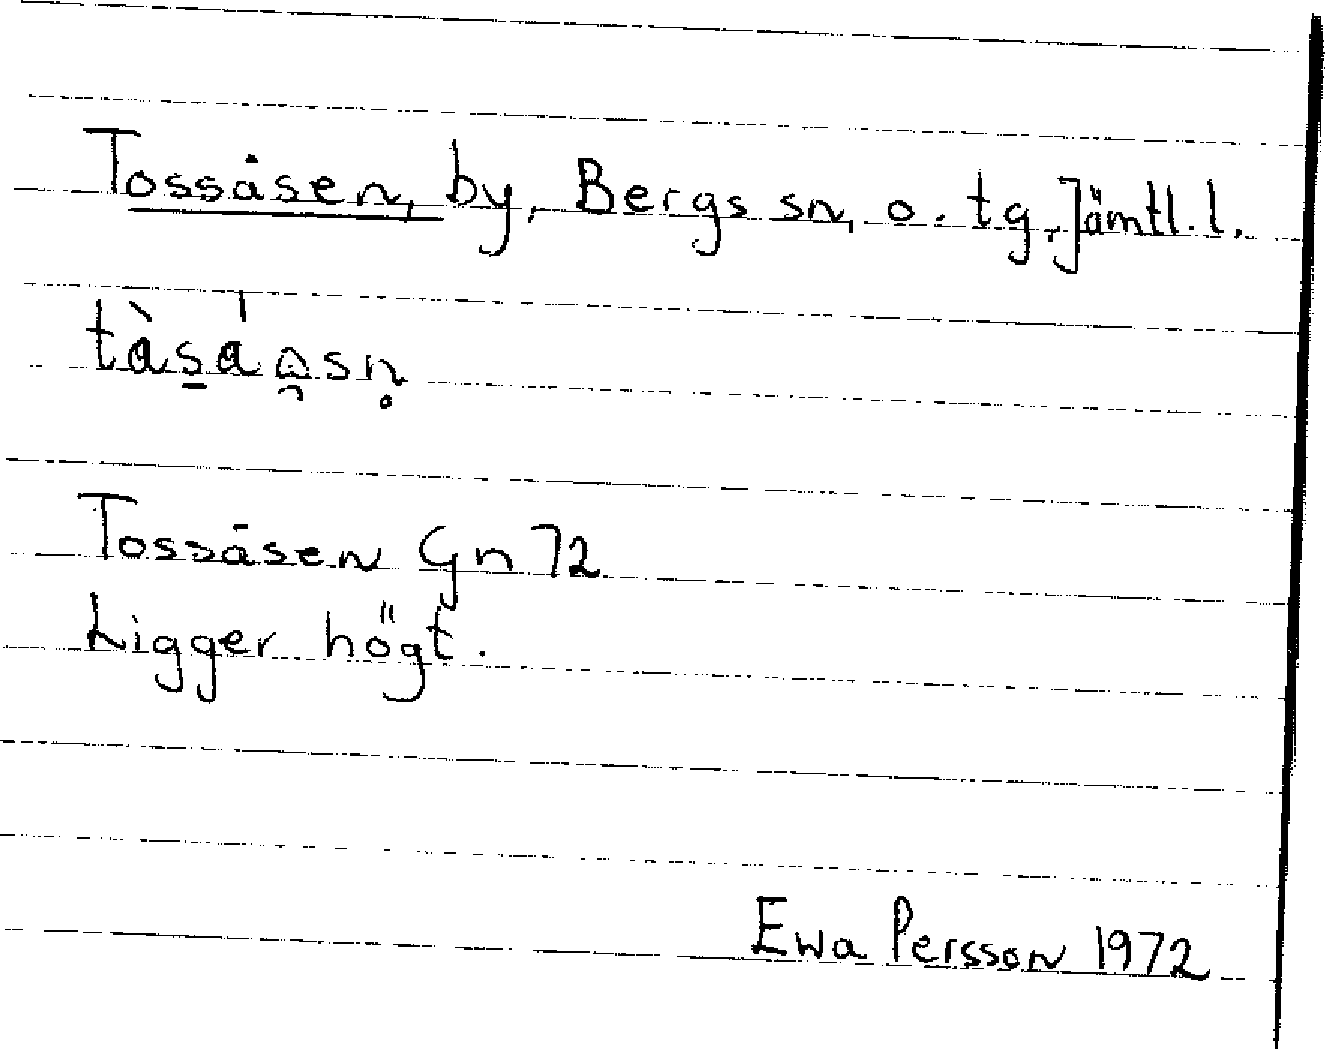 Tossåsen, by, Bergs sn, o. tg, Jämtl. l.
Tossåsen Gn 72
Ligger högt.
Ewa Persson 1972